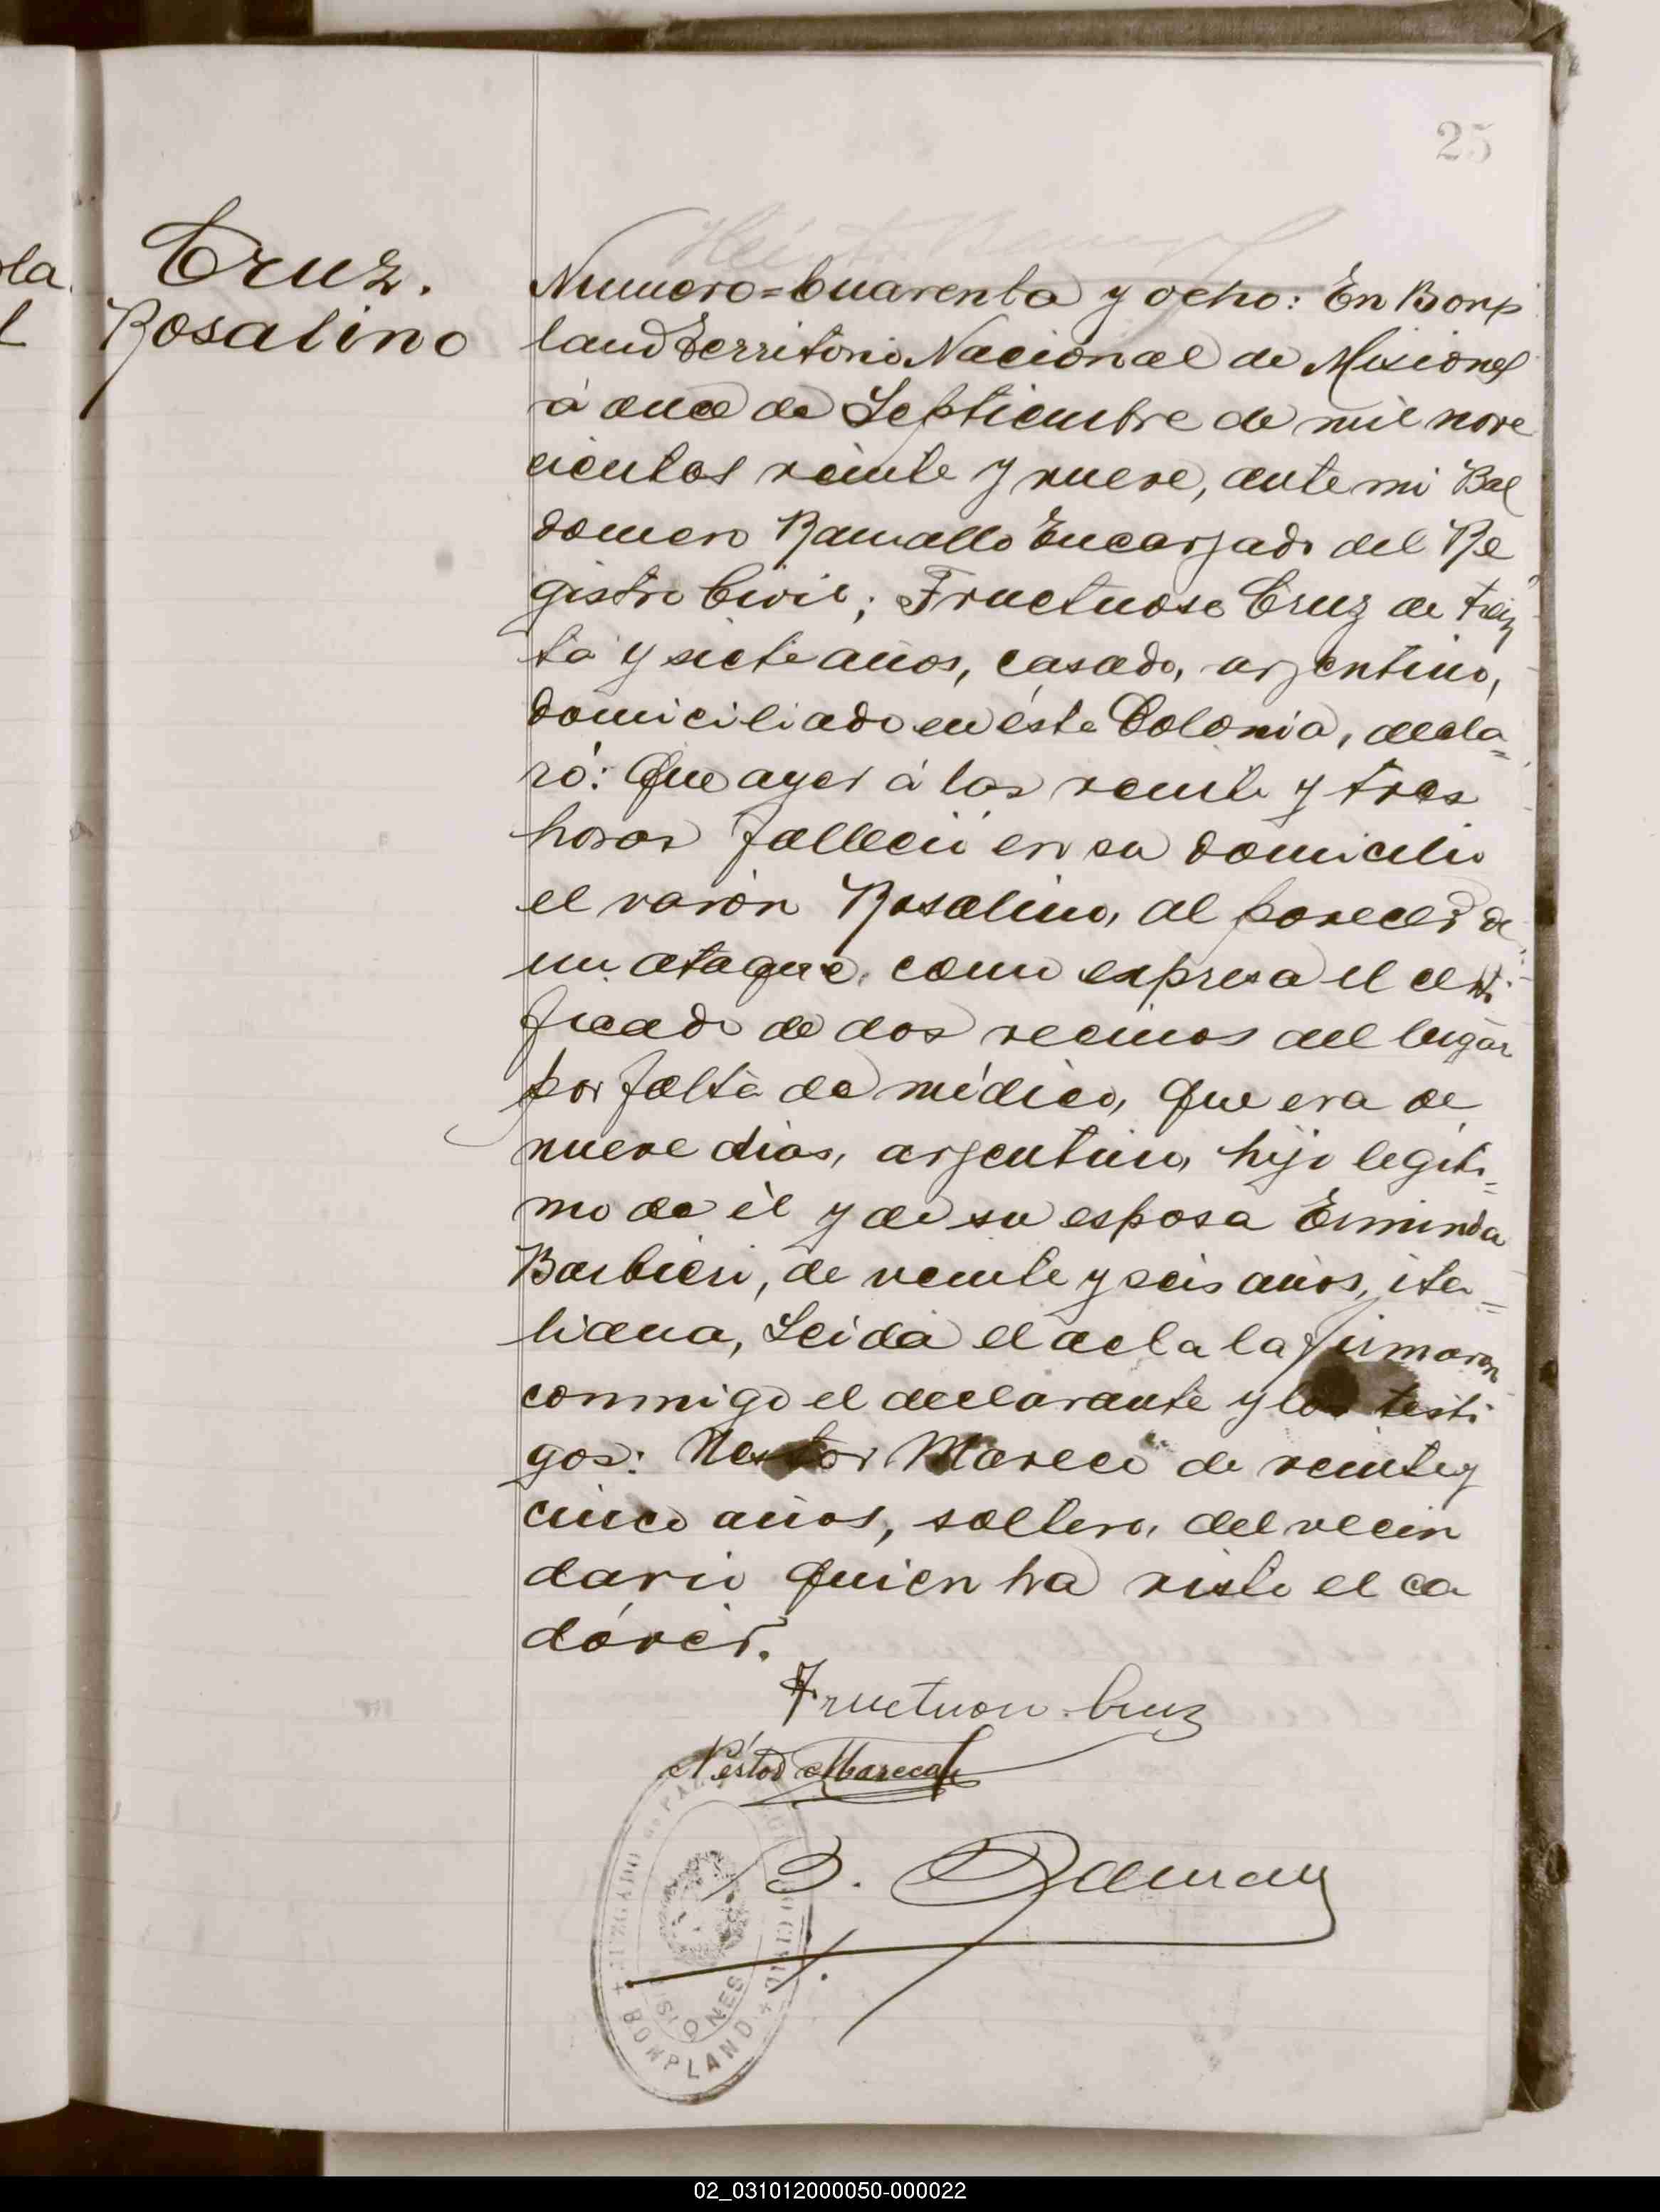 25
Cruz.
Rosalino
Numero=Cuarenta y ocho: En Bonp
land Territorio Nacional de Misiones
á once de Septiembre de mil nove
cientos veinte y nueve, ante mi Bal
domero Ramallo Encargado del Re
gistro Civil; Fructuoso Cruz de trein
ta y siete años, casado, argentino,
domiciliado en ésta Colonia, decla=
ró: Que ayer á las veinte y tres
horas falleció en su domicilio
el varón Rosalino, al parecer de
un ataque, como expresa el certi
ficado de dos vecinos del lugar
por falta de médico, que era de
nueve dias, argentino, hijo legiti=
mo de él y de su esposa Erminda
Barbieri, de veinte y seis años, ita=
liana, Leida el acta la firmaron
conmigo el declarante y los testi
gos: Nestor Mareco de veinte y
cinco años, soltero, del vecin
dario quien ha visto el ca
dáver.
Fructuoso Cruz
Néstor Mareco
B. Ramallo
JUZGADO DE PAZ
CIVIL
MISIONES
BONPLAND
02_031012000050-000022